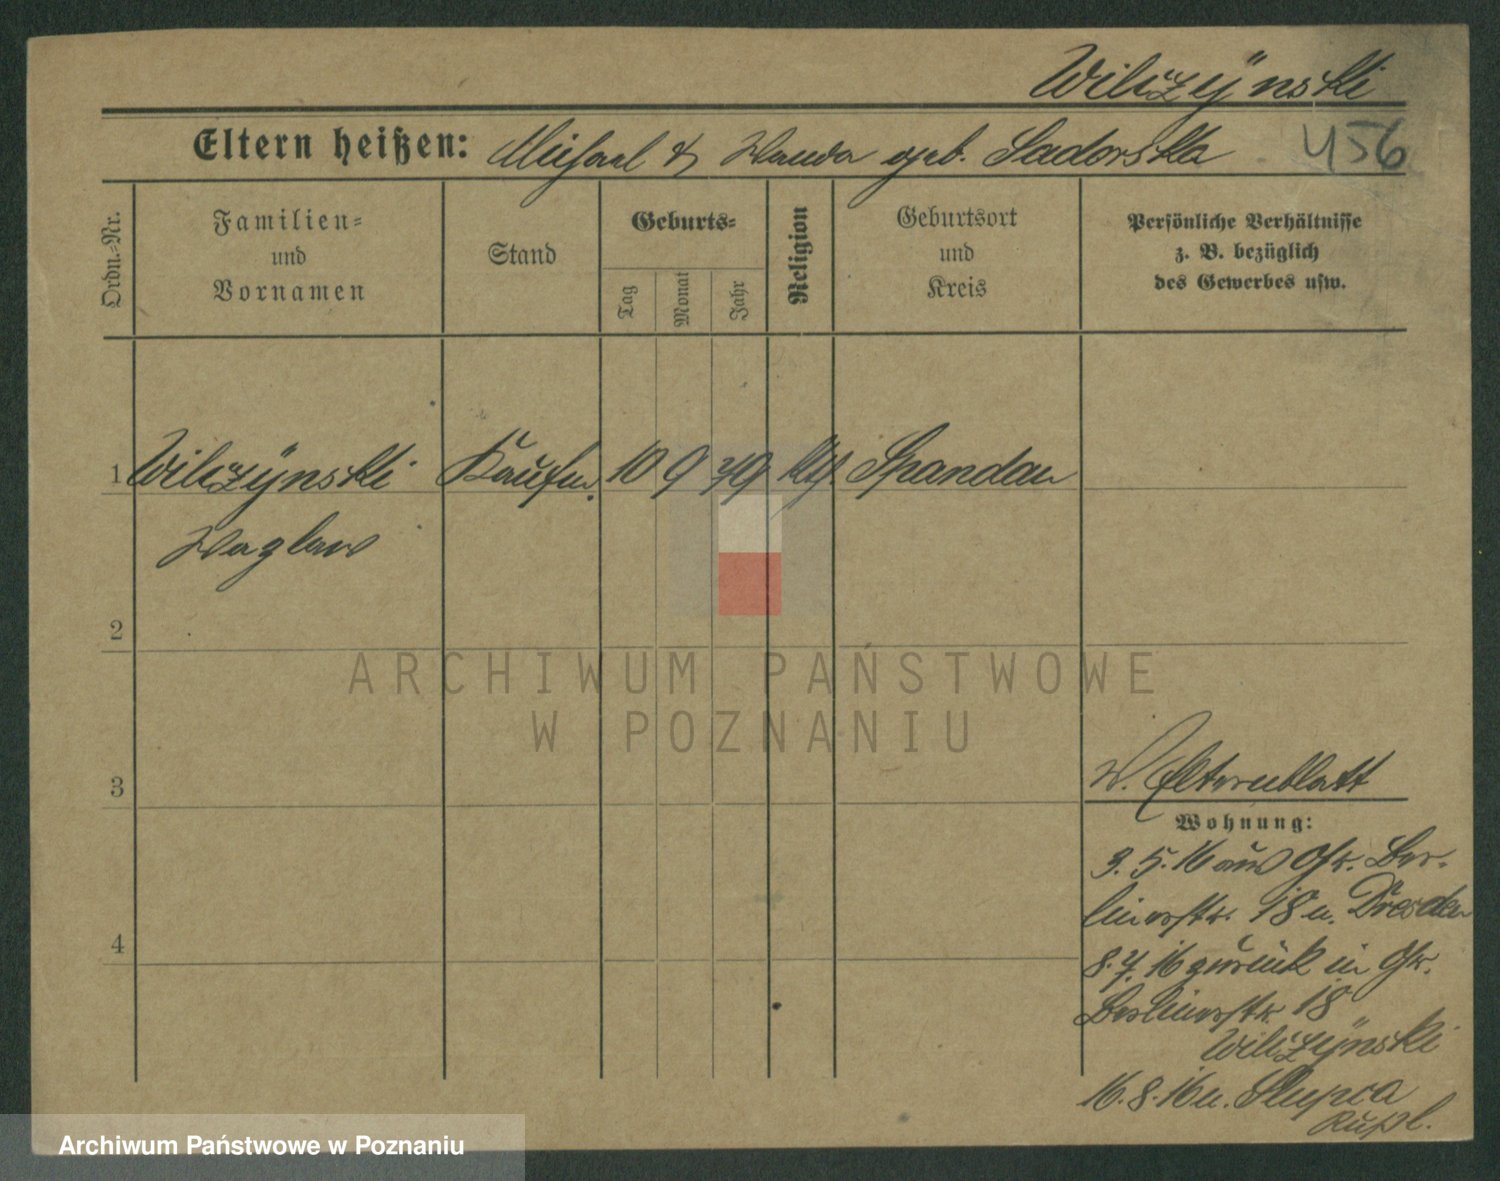 Wilczÿnski
Eltern heißen: Michael & Wanda geb. Sadorska 456
Ordn.-Nr.
Familien-
und
Vornamen
Stand
Geburts-
Tag
Monat
Jahr
Religion
Geburtsort
und
Kreis
Persönliche Verhältnisse
z. B. bezüglich
des Gewerbes usw.
1 Wilczÿnski Kaufm. 10 9 79 kth. Spandau
Waglaw
2
ARCHIWUM PAŃSTWOWE
W POZNANIU
3
W. Elternblatt
Wohnung:
3. 5. 16 aus Gr. Ber-
linerstr. 18 n. Dresden
8. 7. 16 zurück in Gr.
4
Berlinerstr. 18
Wilczÿnski
16. 8. 16 n. Slupca
Rußl.
Archiwum Państwowe w Poznaniu